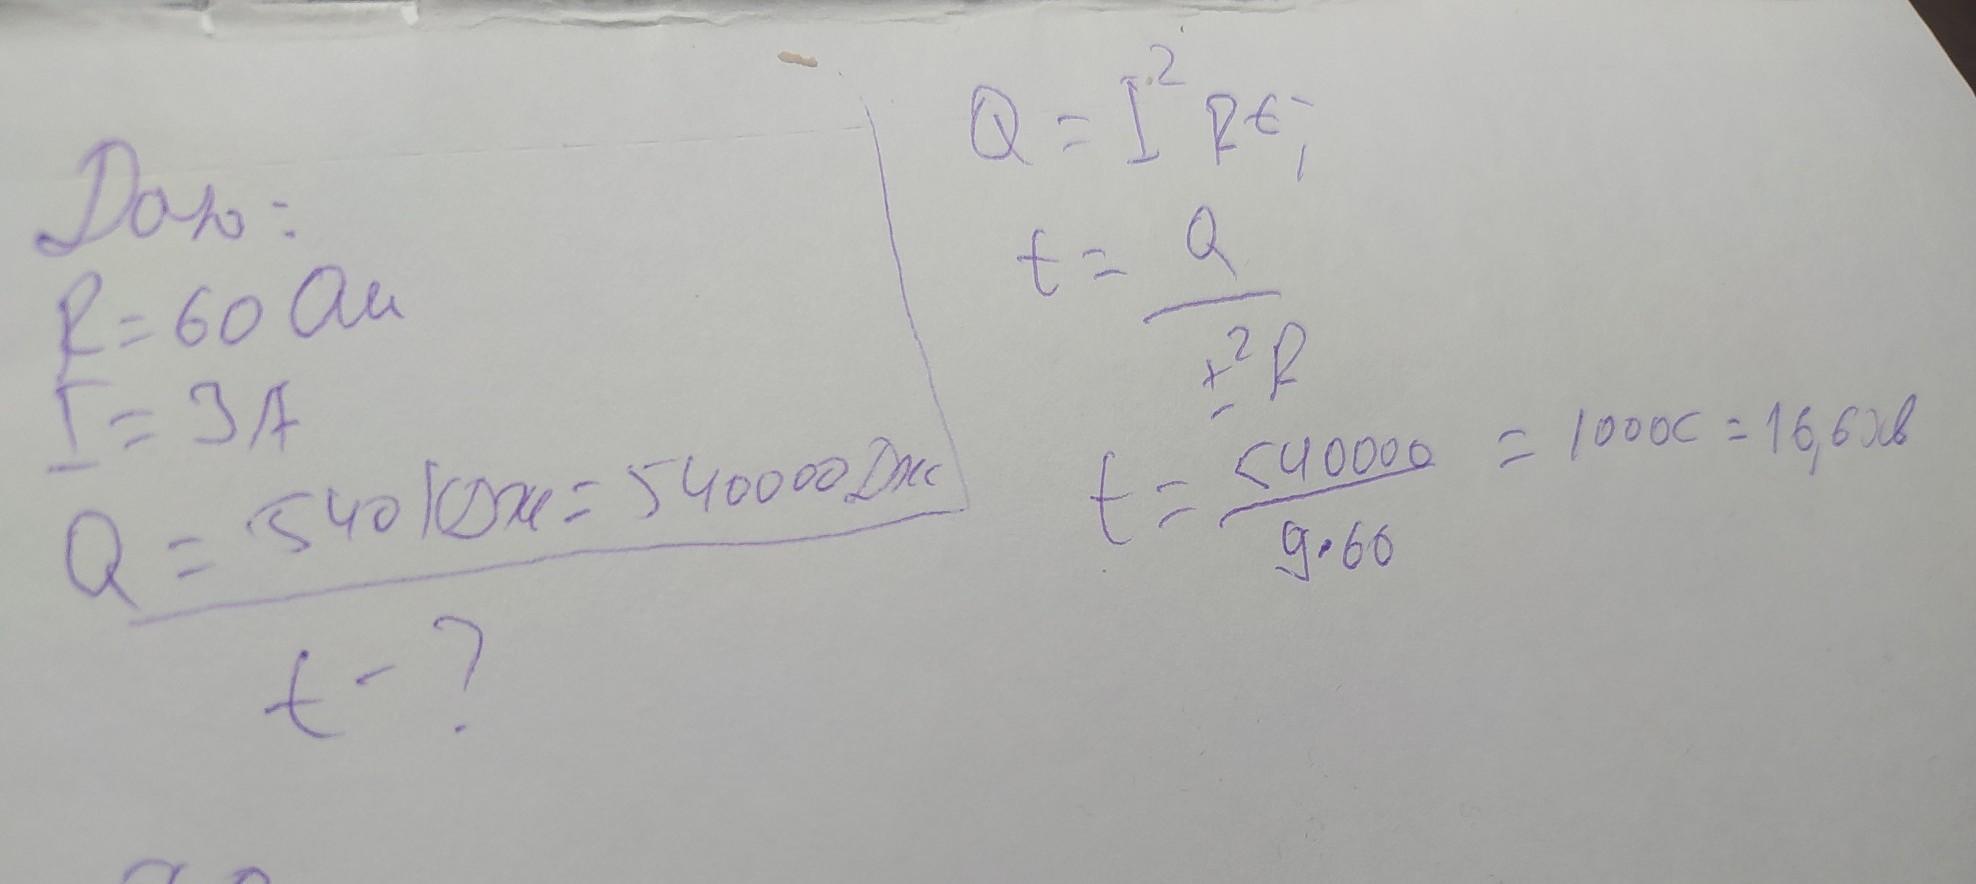 Дано:
R = 60 Ом
I = 3A
Q = 540 кДж = 540000 Дж
t - ?
Q = I² Rt;
t = Q
I² R
t = 540000 = 1000с = 16,6 хв
9·60